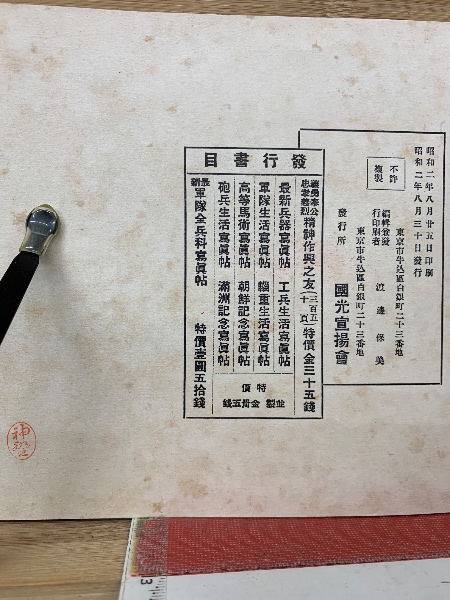 昭和二年八月廿五日印刷
昭和二年八月三十日發行
不許
複製
東京市牛込區白銀町二十三番地
編輯兼發
行印刷者
渡邊保美
東京市牛込區白銀町二十三番地
發行所
國光宣揚會
發行書目
義勇奉公
忠孝義烈
精神作興之友
(三百五
十頁)
特價金三十五錢
最新兵器寫眞帖
工兵生活寫眞帖
軍隊生活寫眞帖
輜重生活寫眞帖
高等馬術寫眞帖
朝鮮記念寫眞帖
砲兵生活寫眞帖
滿洲記念寫眞帖
特價
並製金卅五錢
最新
軍隊全兵科寫眞帖
特價壹圓五拾錢